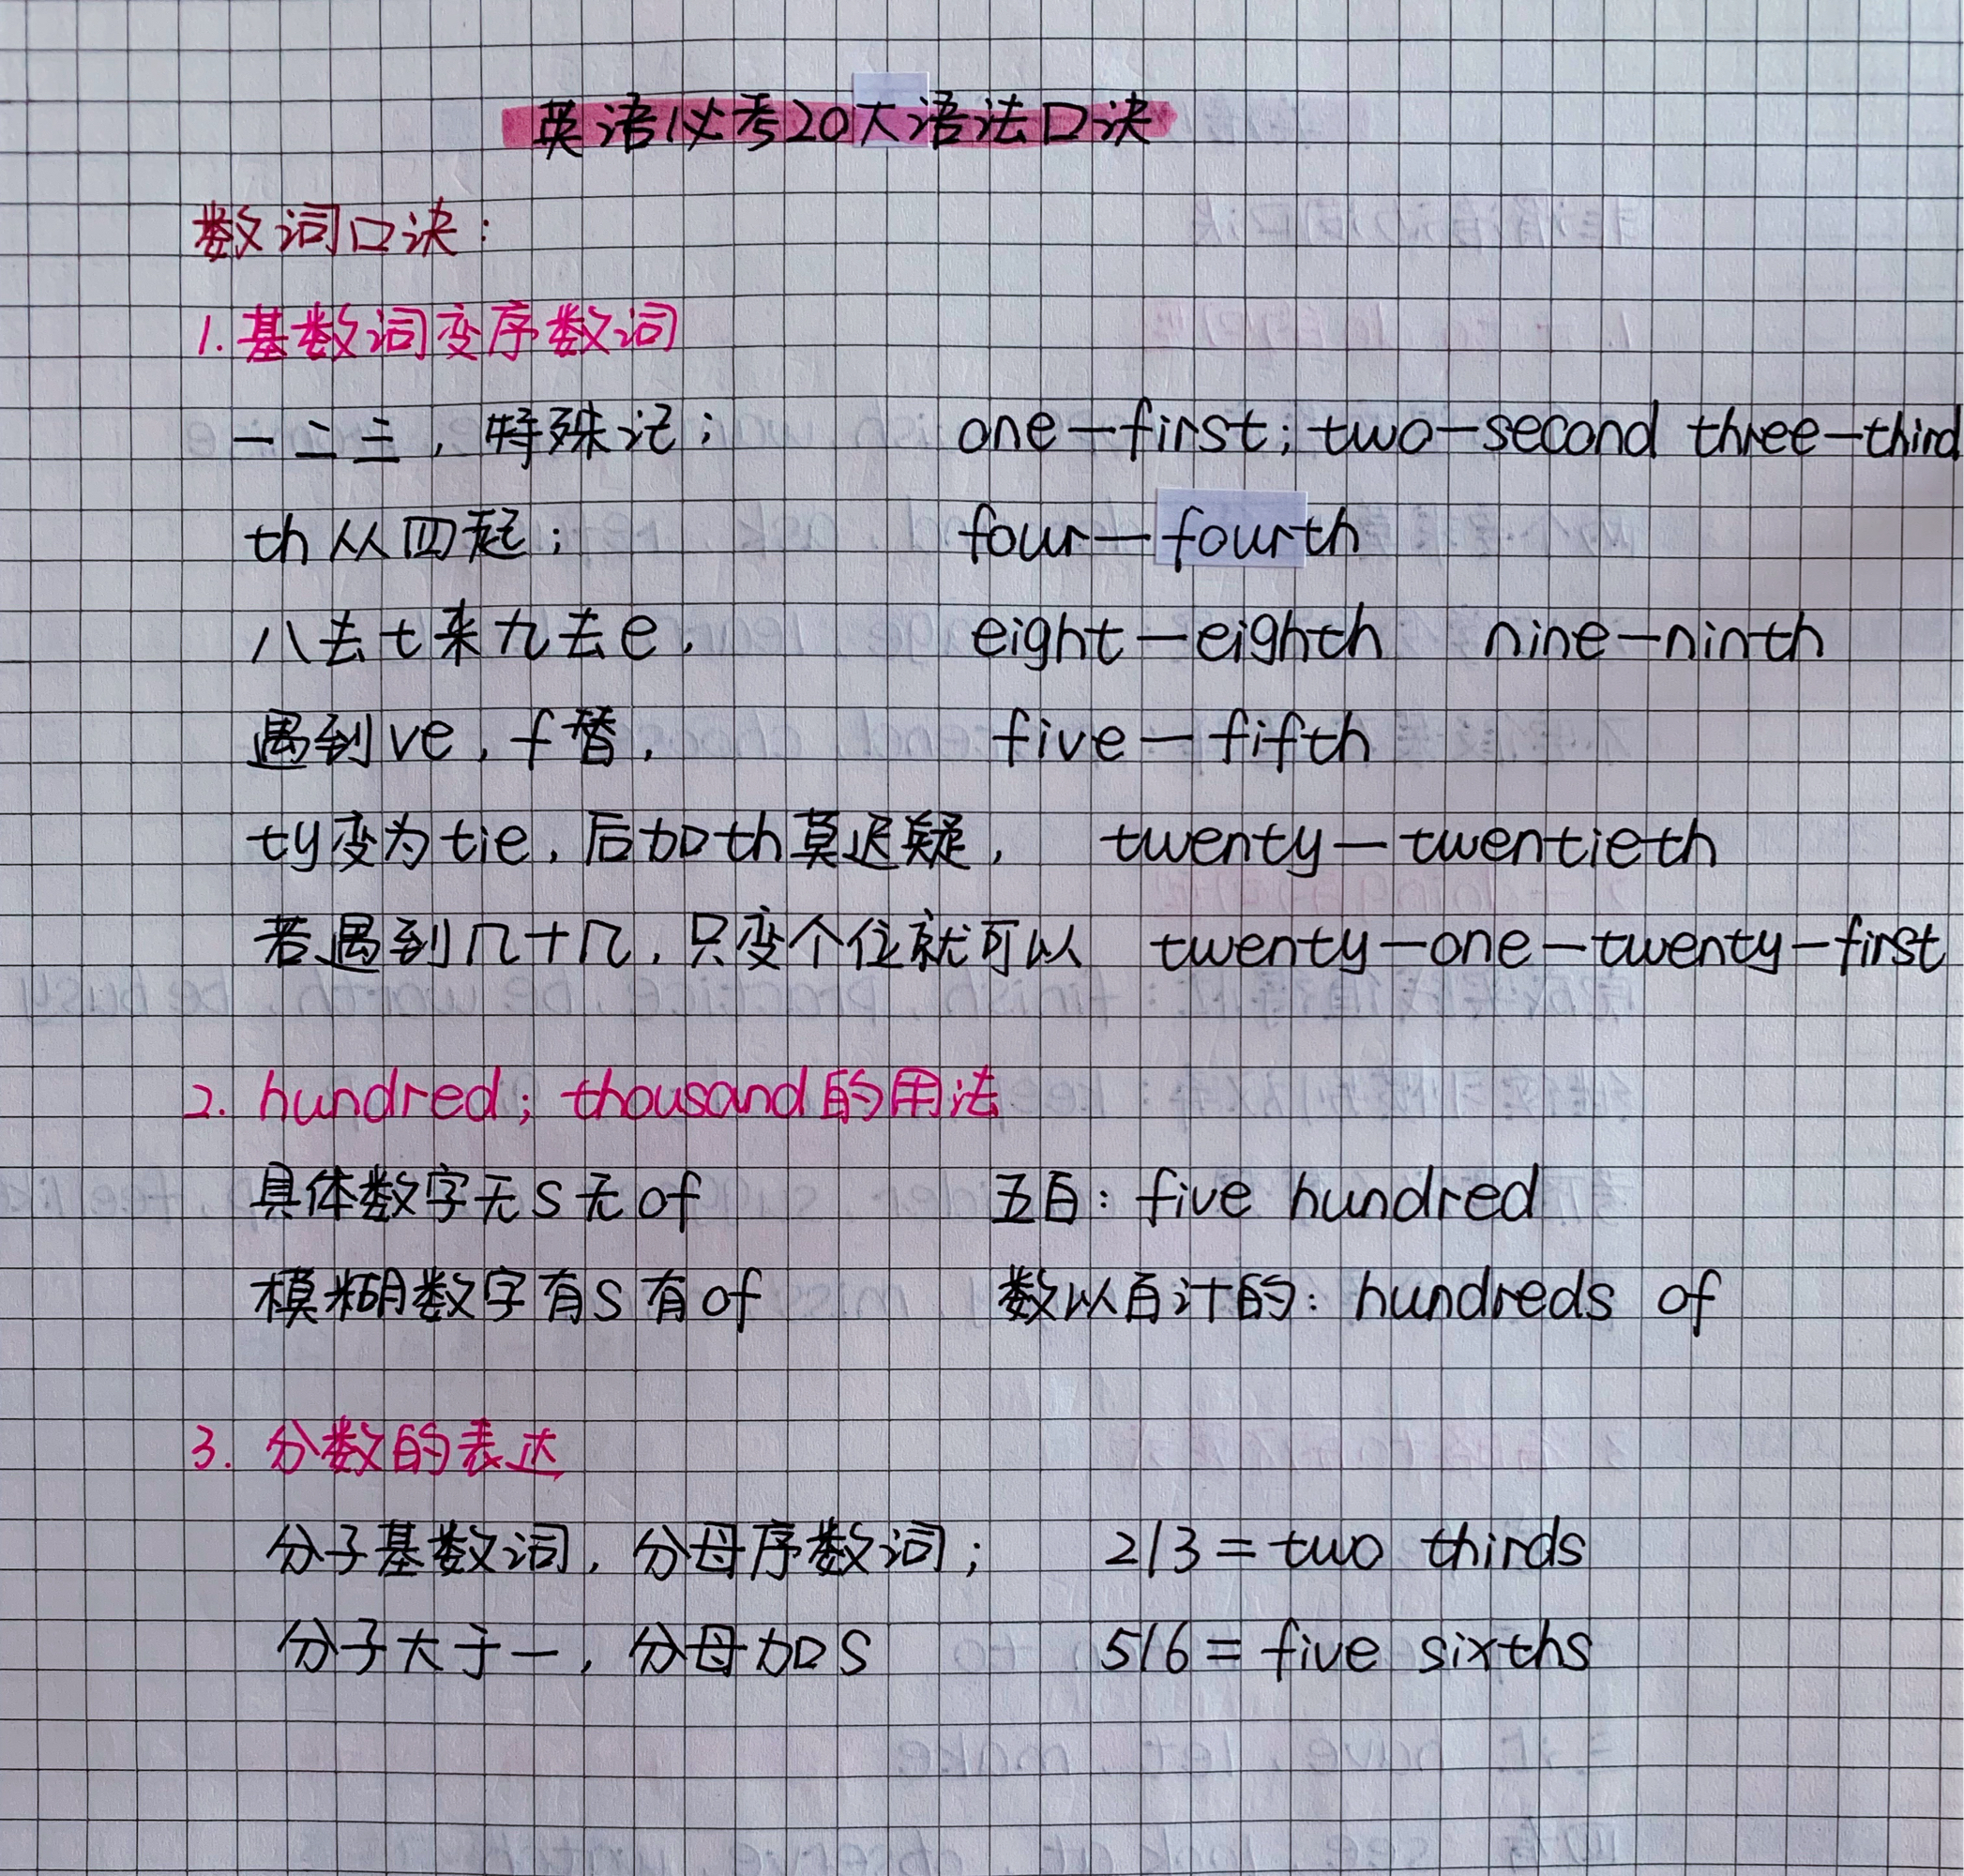 英语必考20大语法口决
数词口决：
1. 基数词变序数词
一二三，特殊记； one—first; two—second three—third
th从四起； four—fourth
八去t来九去e， eight—eighth nine—ninth
遇到ve，f替， five—fifth
ty变为tie，后加th莫迟疑， twenty—twentieth
若遇到几十几，只变个位就可以 twenty—one—twenty—first
2. hundred; thousand的用法
具体数字无s无of 五百：five hundred
模糊数字有s有of 数以百计的：hundreds of
3. 分数的表达
分子基数词，分母序数词； 2/3=two thirds
分子大于一，分母加s 5/6=five sixths